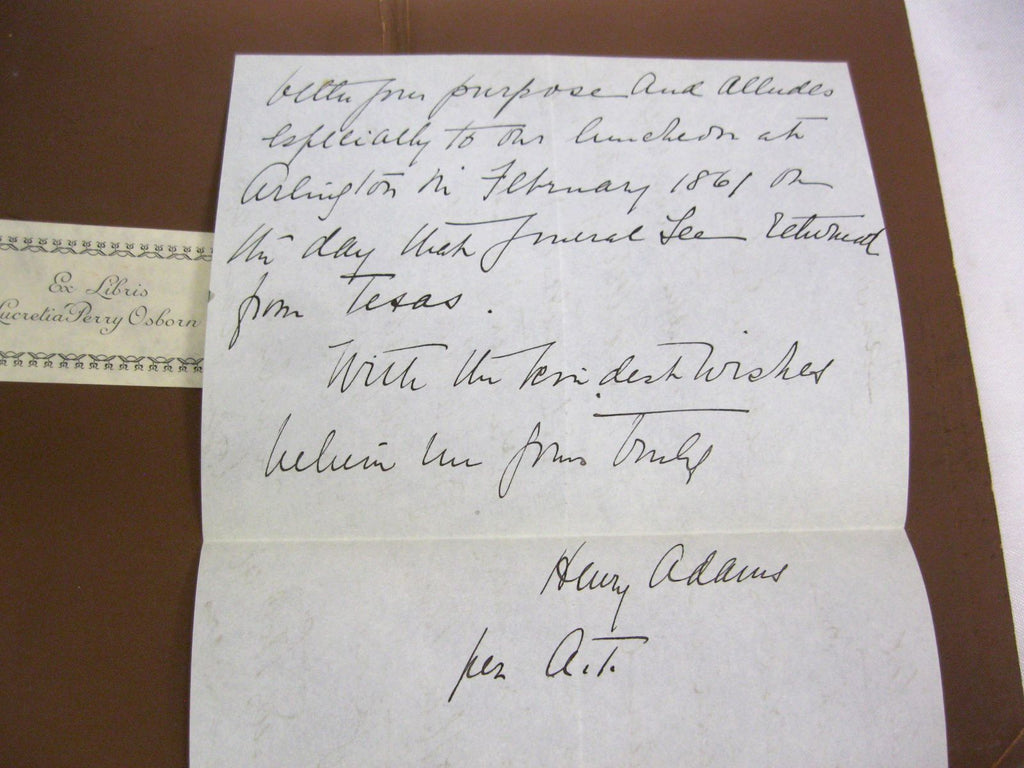 better your purpose and alludes
especially to our luncheon at
Arlington in February 1861 on
the day that General Lee returned
from Texas.
With the kindest wishes
believe me yours truly
Henry Adams
per A.T.
Ex Libris
Lucretia Perry Osborn